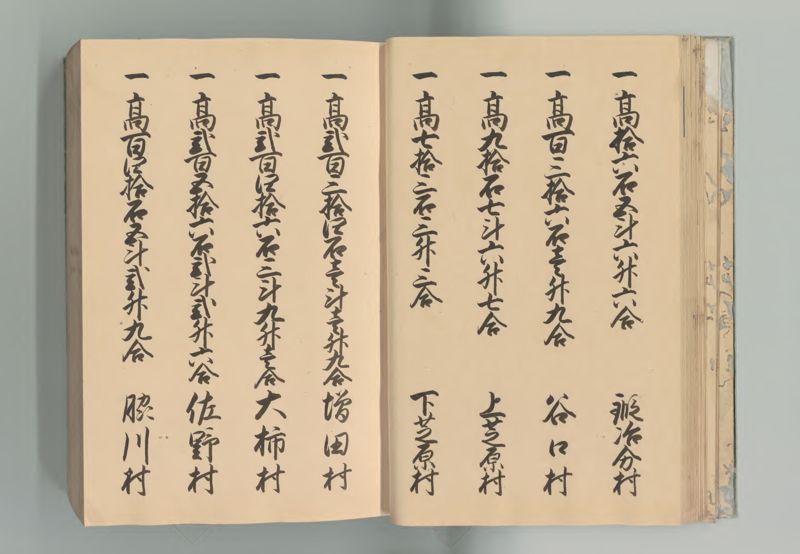 一 髙拾六石五斗六升六合 鍛冶分村
一 髙百三拾六石壱升九合 谷口村
一 髙九拾石七斗六升七合 上芝原村
一 髙七拾三石三升三合 下芝原村
一 髙弐百三拾四石壱斗壱升九合 増田村
一 髙弐百四拾六石三斗九升壱合 大柿村
一 髙弐百五拾六石弐斗弐升六合 佐野村
一 髙百四拾石五斗弐升九合 脇川村